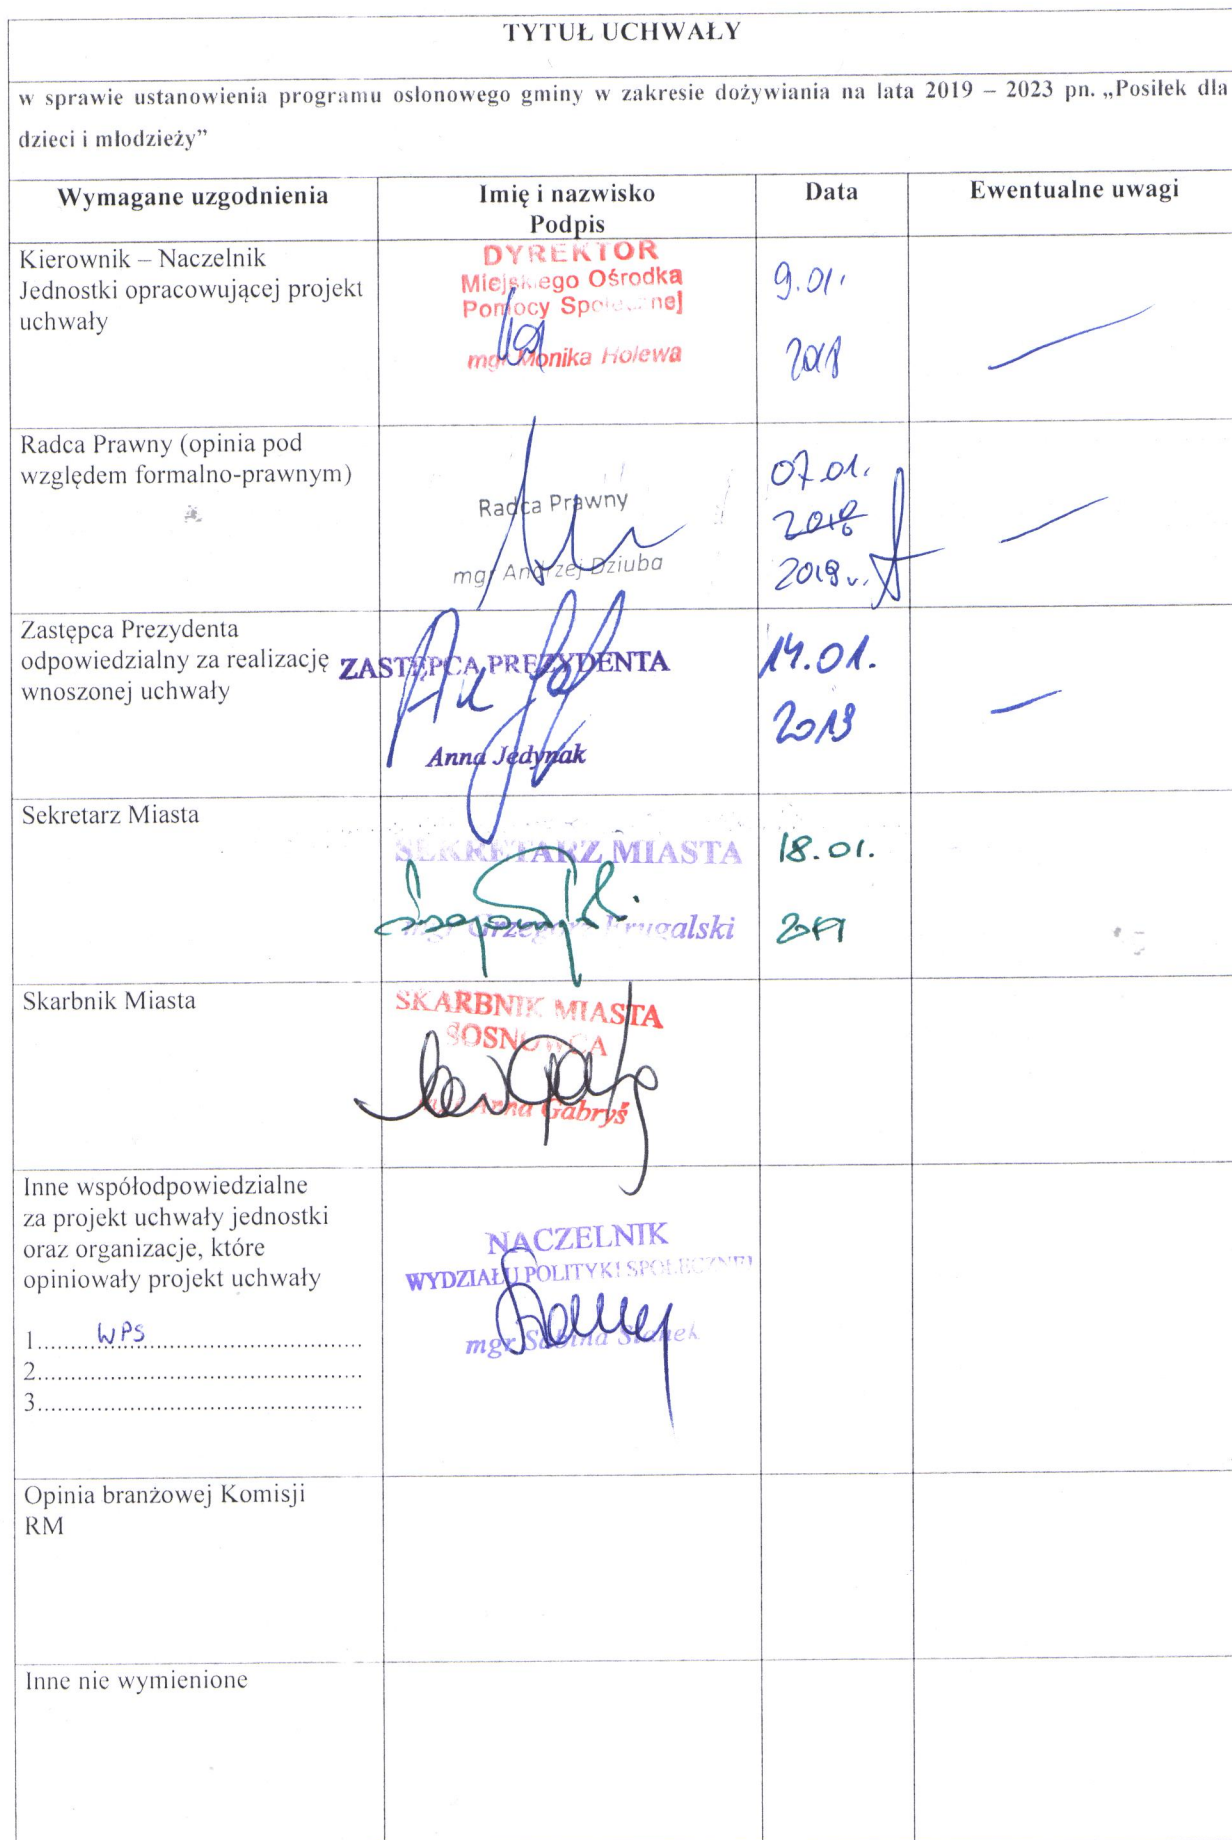 TYTUŁ UCHWAŁY
w sprawie ustanowienia programu osłonowego gminy w zakresie dożywiania na lata 2019 – 2023 pn. „Posiłek dla
dzieci i młodzieży”
Wymagane uzgodnienia
Imię i nazwisko
Podpis
Data
Ewentualne uwagi
Kierownik – Naczelnik
Jednostki opracowującej projekt
uchwały
DYREKTOR
Miejskiego Ośrodka
Pomocy Społecznej
mgr Monika Holewa
9.01.
2018
Radca Prawny (opinia pod
względem formalno-prawnym)
Radca Prawny
mgr Andrzej Dziuba
07.01.
2019 r.
Zastępca Prezydenta
odpowiedzialny za realizację
wnoszonej uchwały
ZASTĘPCA PREZYDENTA
Anna Jedynak
14.01.
2019
Sekretarz Miasta
SEKRETARZ MIASTA
mgr Grzegorz Frugalski
18.01.
2019
Skarbnik Miasta
SKARBNIK MIASTA
SOSNOWCA
mgr Anna Gabryś
Inne współodpowiedzialne
za projekt uchwały jednostki
oraz organizacje, które
opiniowały projekt uchwały
1. WPS
2.
3.
NACZELNIK
WYDZIAŁU POLITYKI SPOŁECZNEJ
mgr Sabina Stanek
Opinia branżowej Komisji
RM
Inne nie wymienione